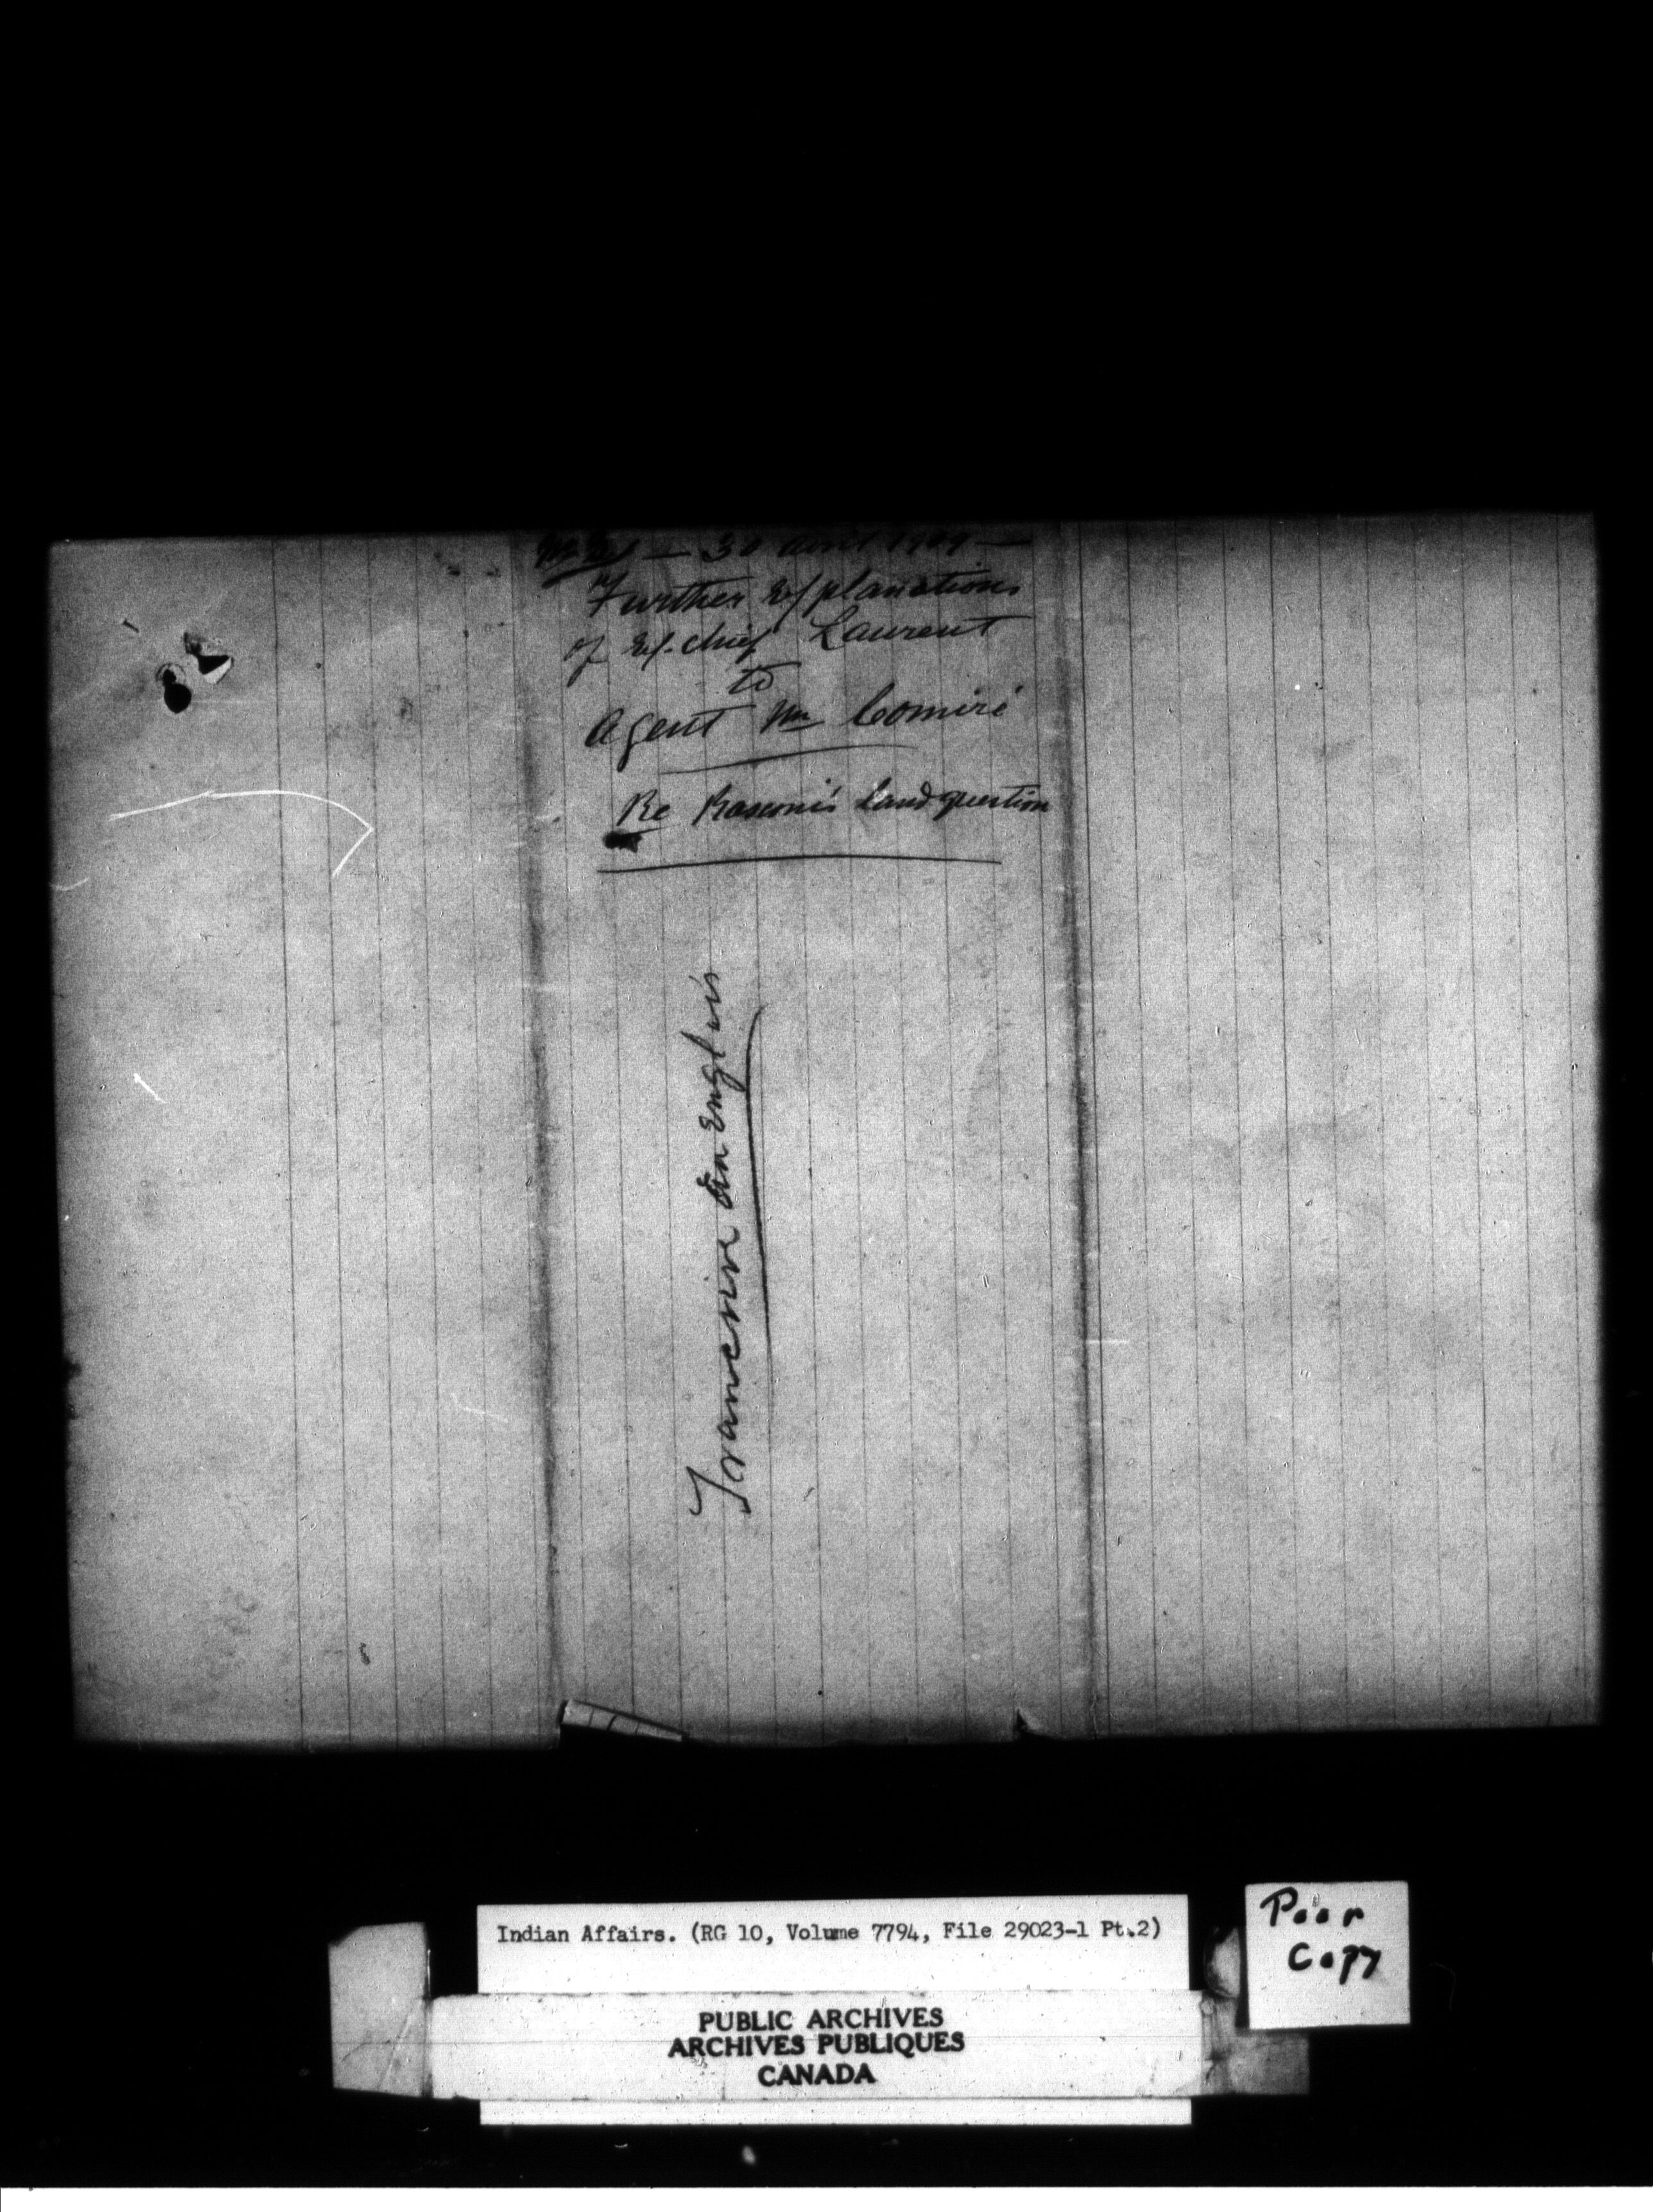 — 30 avril 1909 —
Further Explanations
of Ex-chief Laurent
to
Agent Mr Comiré
Re land question
Transcrire en anglais
Indian Affairs. (RG 10, Volume 7794, File 29023-1 Pt.2)
Poor
Copy
PUBLIC ARCHIVES
ARCHIVES PUBLIQUES
CANADA